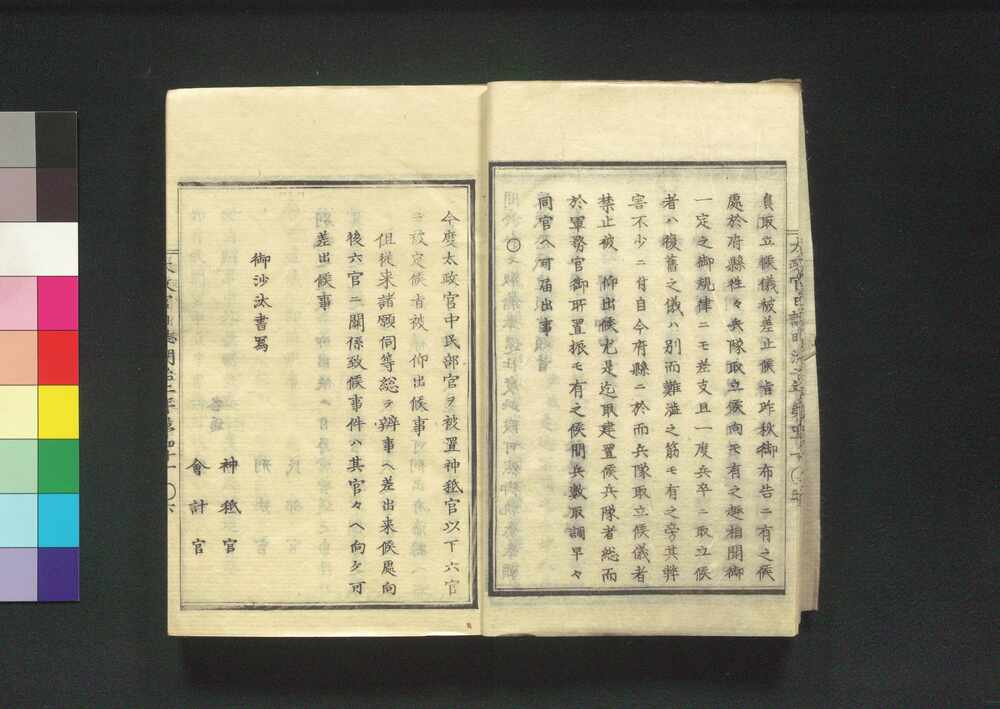 員取立候儀被差止候旨昨秋御布告ニ有之候
處於府縣徃々兵隊取立候向モ有之趣相聞御
一定之御規律ニモ差支且一度兵卒ニ取立候
者ハ復舊之儀ハ別而難澁之筋モ有之旁其弊
害不少ニ付自今府縣ニ於而兵隊取立候儀者
禁止被　仰出候尤是迄取建置候兵隊者総而
於軍務官御所置振モ有之候間兵數取調早々
同官ヘ可届出事
今度太政官中民部官ヲ被置神祗官以下六官
ニ被定候旨被　仰出候事
但従来諸願伺等総ヲ辨事ヘ差出来候處向
後六官ニ關係致候事件ハ其官々ヘ向ケ可
差出候事
御沙汰書寫
神祗官
會計官